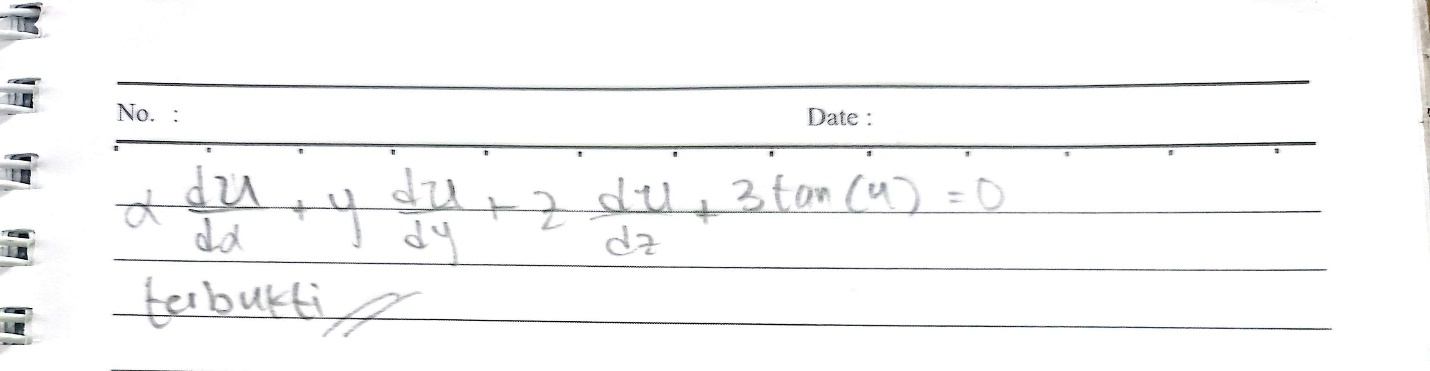 No. : Date :
x du/dx + y du/dy + z du/dz + 3 tan (u) = 0
terbukti //